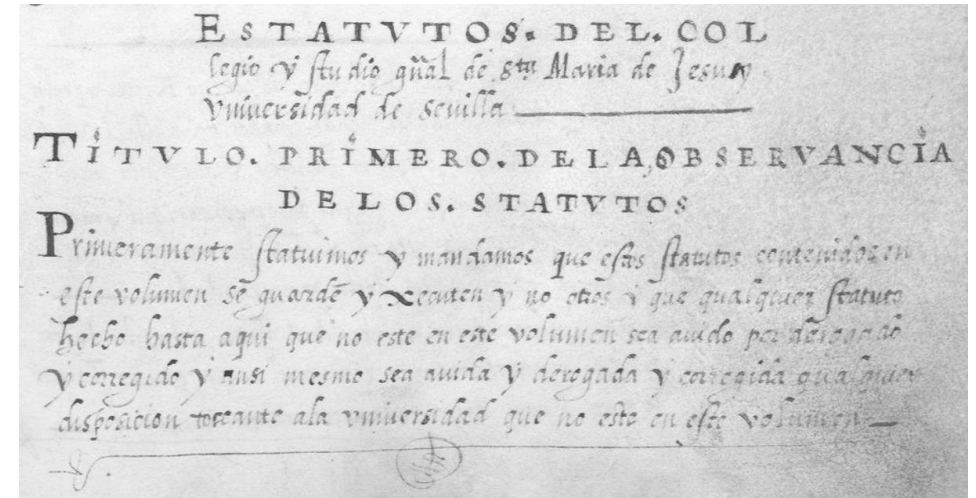 ESTATVTOS. DEL. COL
legio y studio gñal de sta Maria de Jesus y
vniversidad de Sevilla
TITVLO. PRIMERO. DE LA OBSERVANCIA
DE LOS. STATVTOS
Primeramente statuimos y mandamos que estos statutos contenidos en
este volumen se guardē y executen y no otros y que qualquier statuto
hecho hasta aqui que no este en este volumen sea auido por derogado
y corregido y ansi mesmo sea auida y derogada y corregida qualquier
disposicion tocante ala vniversidad que no este en este volumen